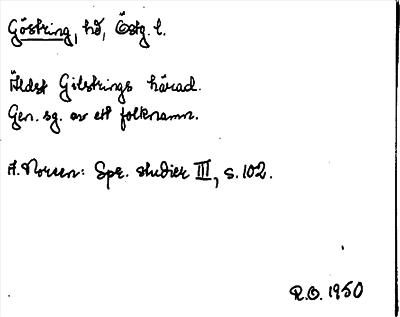 Göstring, hd, Östg. l.
Äldst Gilstrings härad.
Gen. sg. av ett folknamn.
A. Noreen: Spr. studier III, s. 102.
R.O. 1950